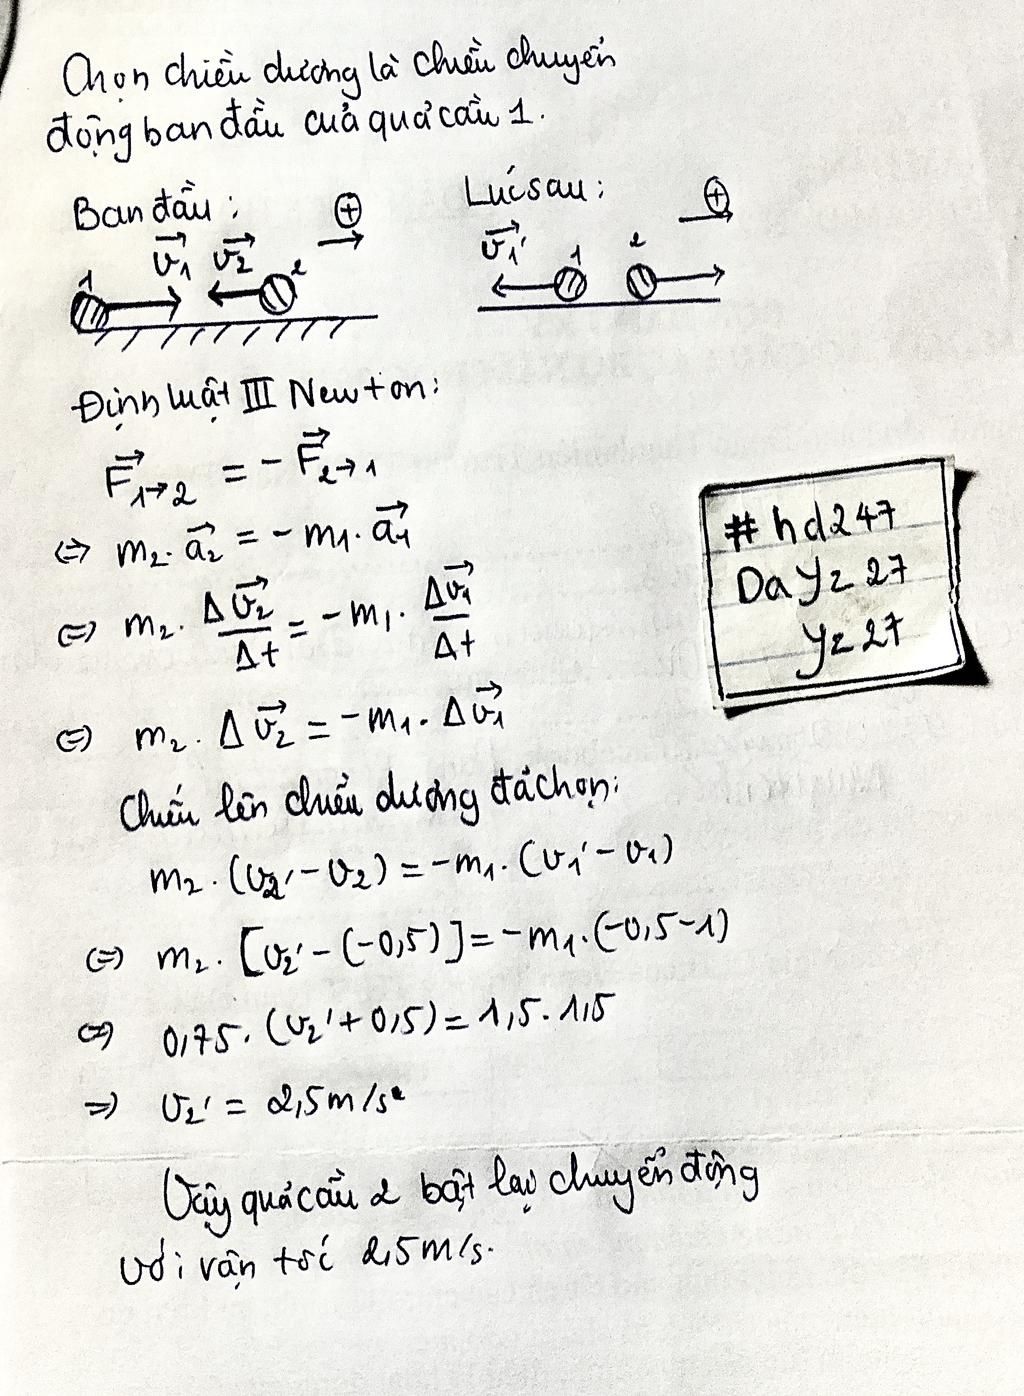 Chọn chiều dương là chiều chuyển
động ban đầu của quả cầu 1.
Ban đầu:
Lúc sau:
v₁ v₂
1 2
v₁'
1 2
Định luật III Newton:
F₁→₂ = -F₂→₁
⇔ m₂. a₂ = -m₁. a₁
⇔ m₂. Δv₂/Δt = -m₁. Δv₁/Δt
⇔ m₂. Δv₂ = -m₁. Δv₁
Chiếu lên chiều dương đã chọn:
m₂. (v₂' - v₂) = -m₁. (v₁' - v₁)
⇔ m₂. [v₂' - (-0,5)] = -m₁. (-0,5-1)
⇔ 0,75. (v₂' + 0,5) = 1,5. 1,5
⇒ v₂' = 2,5m/s
Vậy quả cầu 2 bật lại chuyển động
với vận tốc 2,5m/s.
# hd247
Dayz27
yz27